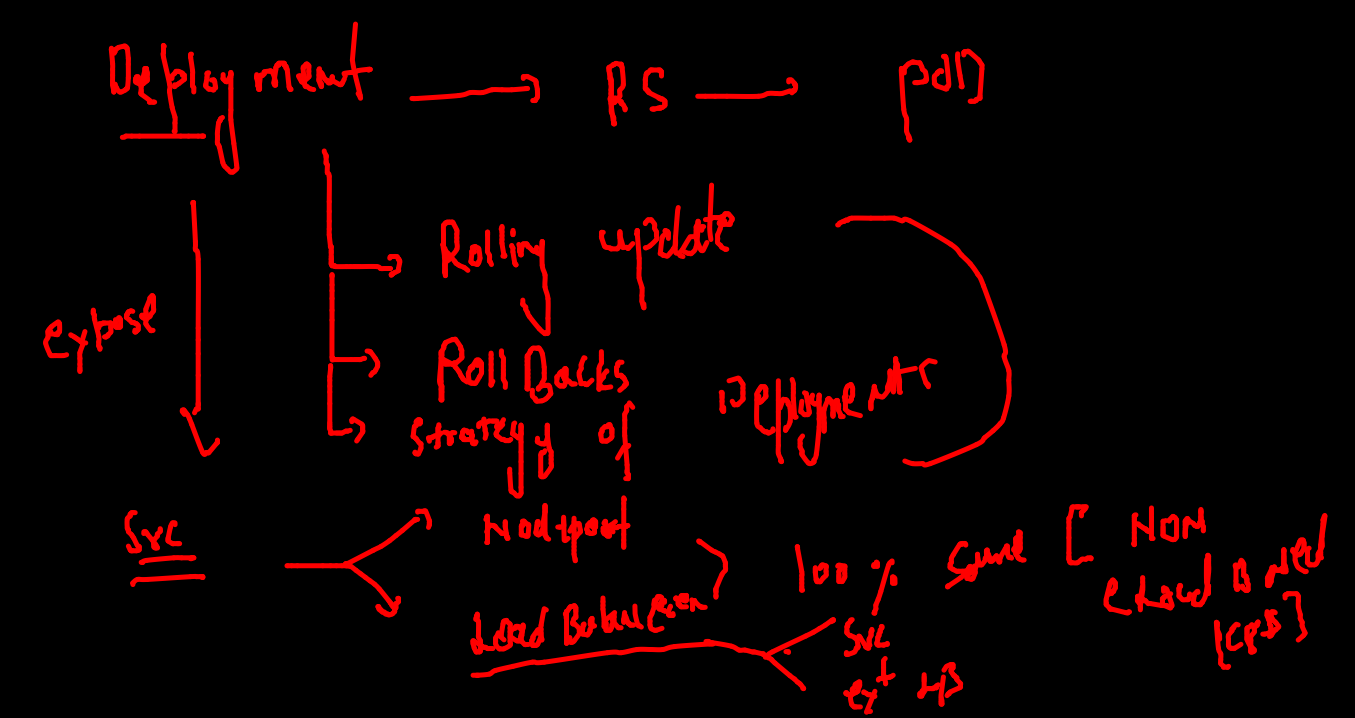 Deployment RS pod
Rolling update
expose
Roll Backs
strategy of Deployments
Svc
Nodport
Load Balancer
100% same [ NON
cloud Based
svc
ext LB